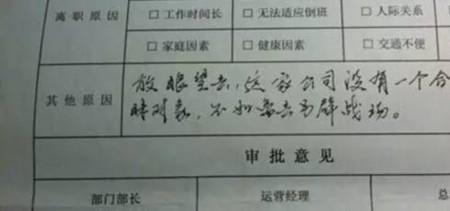 离职原因
□ 工作时间长 □ 无法适应倒班 □ 人际关系
□ 家庭因素 □ 健康因素 □ 交通不便
其他原因
放眼望去,这家公司没有一个合
对象,不如另辟战场。
审批意见
部门部长 运营经理 总